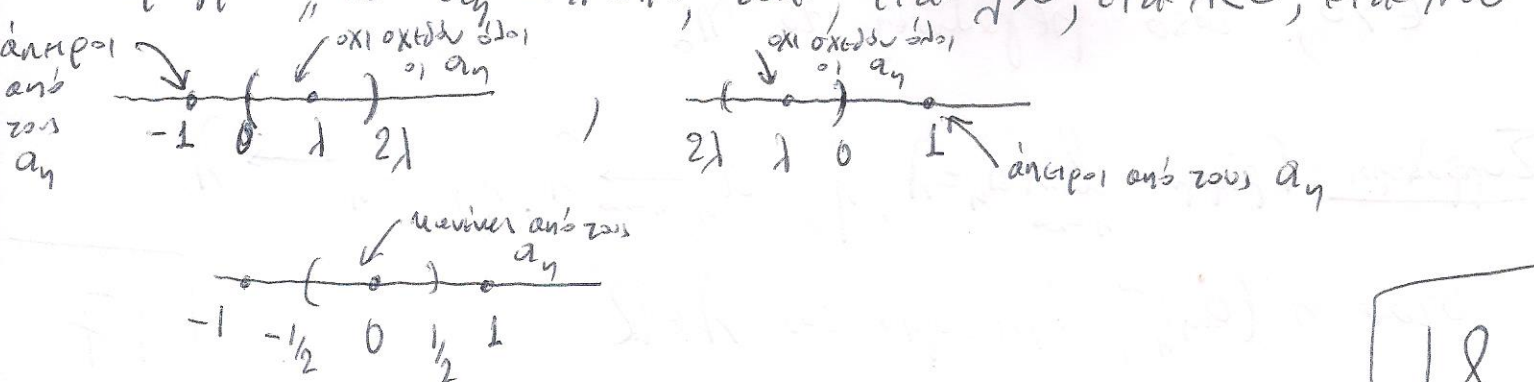 άπειροι
από
τους
aₙ
όχι σχεδόν όλοι
οι aₙ
-1 0 λ 2λ
,
όχι σχεδόν όλοι
οι aₙ
2λ λ 0 1
άπειροι από τους aₙ
κανένας από τους
aₙ
-1 -1/2 0 1/2 1
18